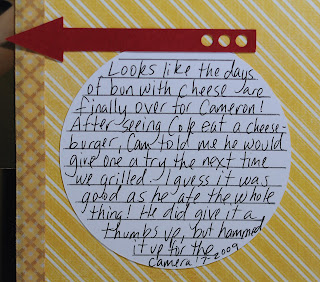 Looks like the days
of bun with cheese are
finally over for Cameron!
After seeing Cole eat a cheese-
burger, Cam told me he would
give one a try the next time
we grilled. I guess it was
good as he ate the whole
thing! He did give it a
thumbs up, but hammed
it up for the
camera! 7-2009